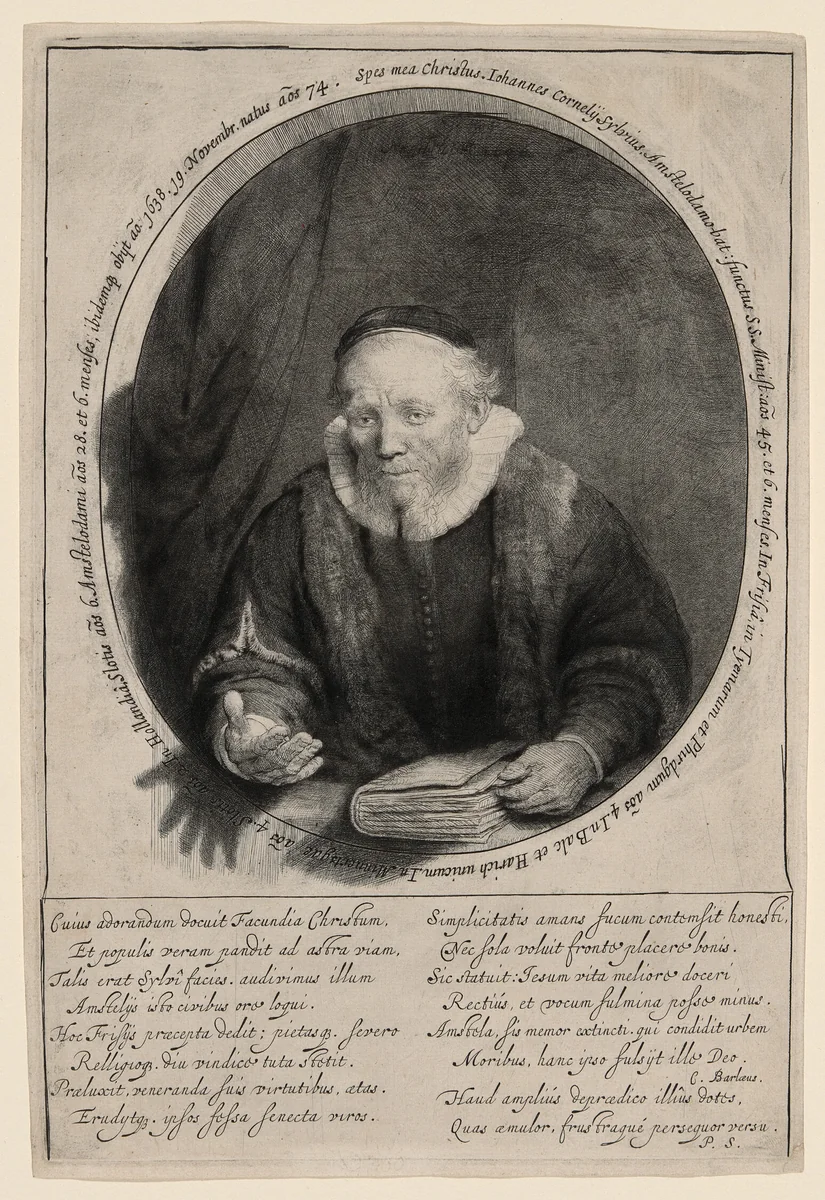 Spes mea Christus. Iohannes Cornelij Sylvius, Amstelodamo-bat: functus S.S. Minist: aōs 45. et 6. menses. In Frisiâ, in Tyenarum et Phirdgum aōs 4. In Balc et Harich unicum. In Minnertsgae aōs 4. Slotis aōs In Hollandiâ, Slotis aōs 6. Amstelodami aōs 28. et 6. menses, ibidemq̨ obijt aō. 1638. 19. Novembr. natus aōs 74.
Cuius adorandum docuit Facundia Christum,
Et populis veram pandit ad astra viam,
Talis erat Sylvî facies. audivimus illum
Amstelijs isto civibus ore loqui.
Hoc Frisijs præcepta dedit; pietasq̨. severo
Relligioq̨. diu vindice tuta stetit.
Præluxit, veneranda suis virtutibus, ætas.
Erudytq̨. ipsos fessa senecta viros.
Simplicitatis amans fucum contemsit honesti,
Nec sola voluit fronte placere bonis.
Sic statuit: Iesum vita meliore doceri
Rectiùs, et vocum fulmina posse minus.
Amstela, sis memor extincti. qui condidit urbem
Moribus, hanc ipso fulsijt ille Deo.
C. Barlæus.
Haud ampliùs deprædico illius dotes,
Quas æmulor, frustraque persequor versu.
P. S.